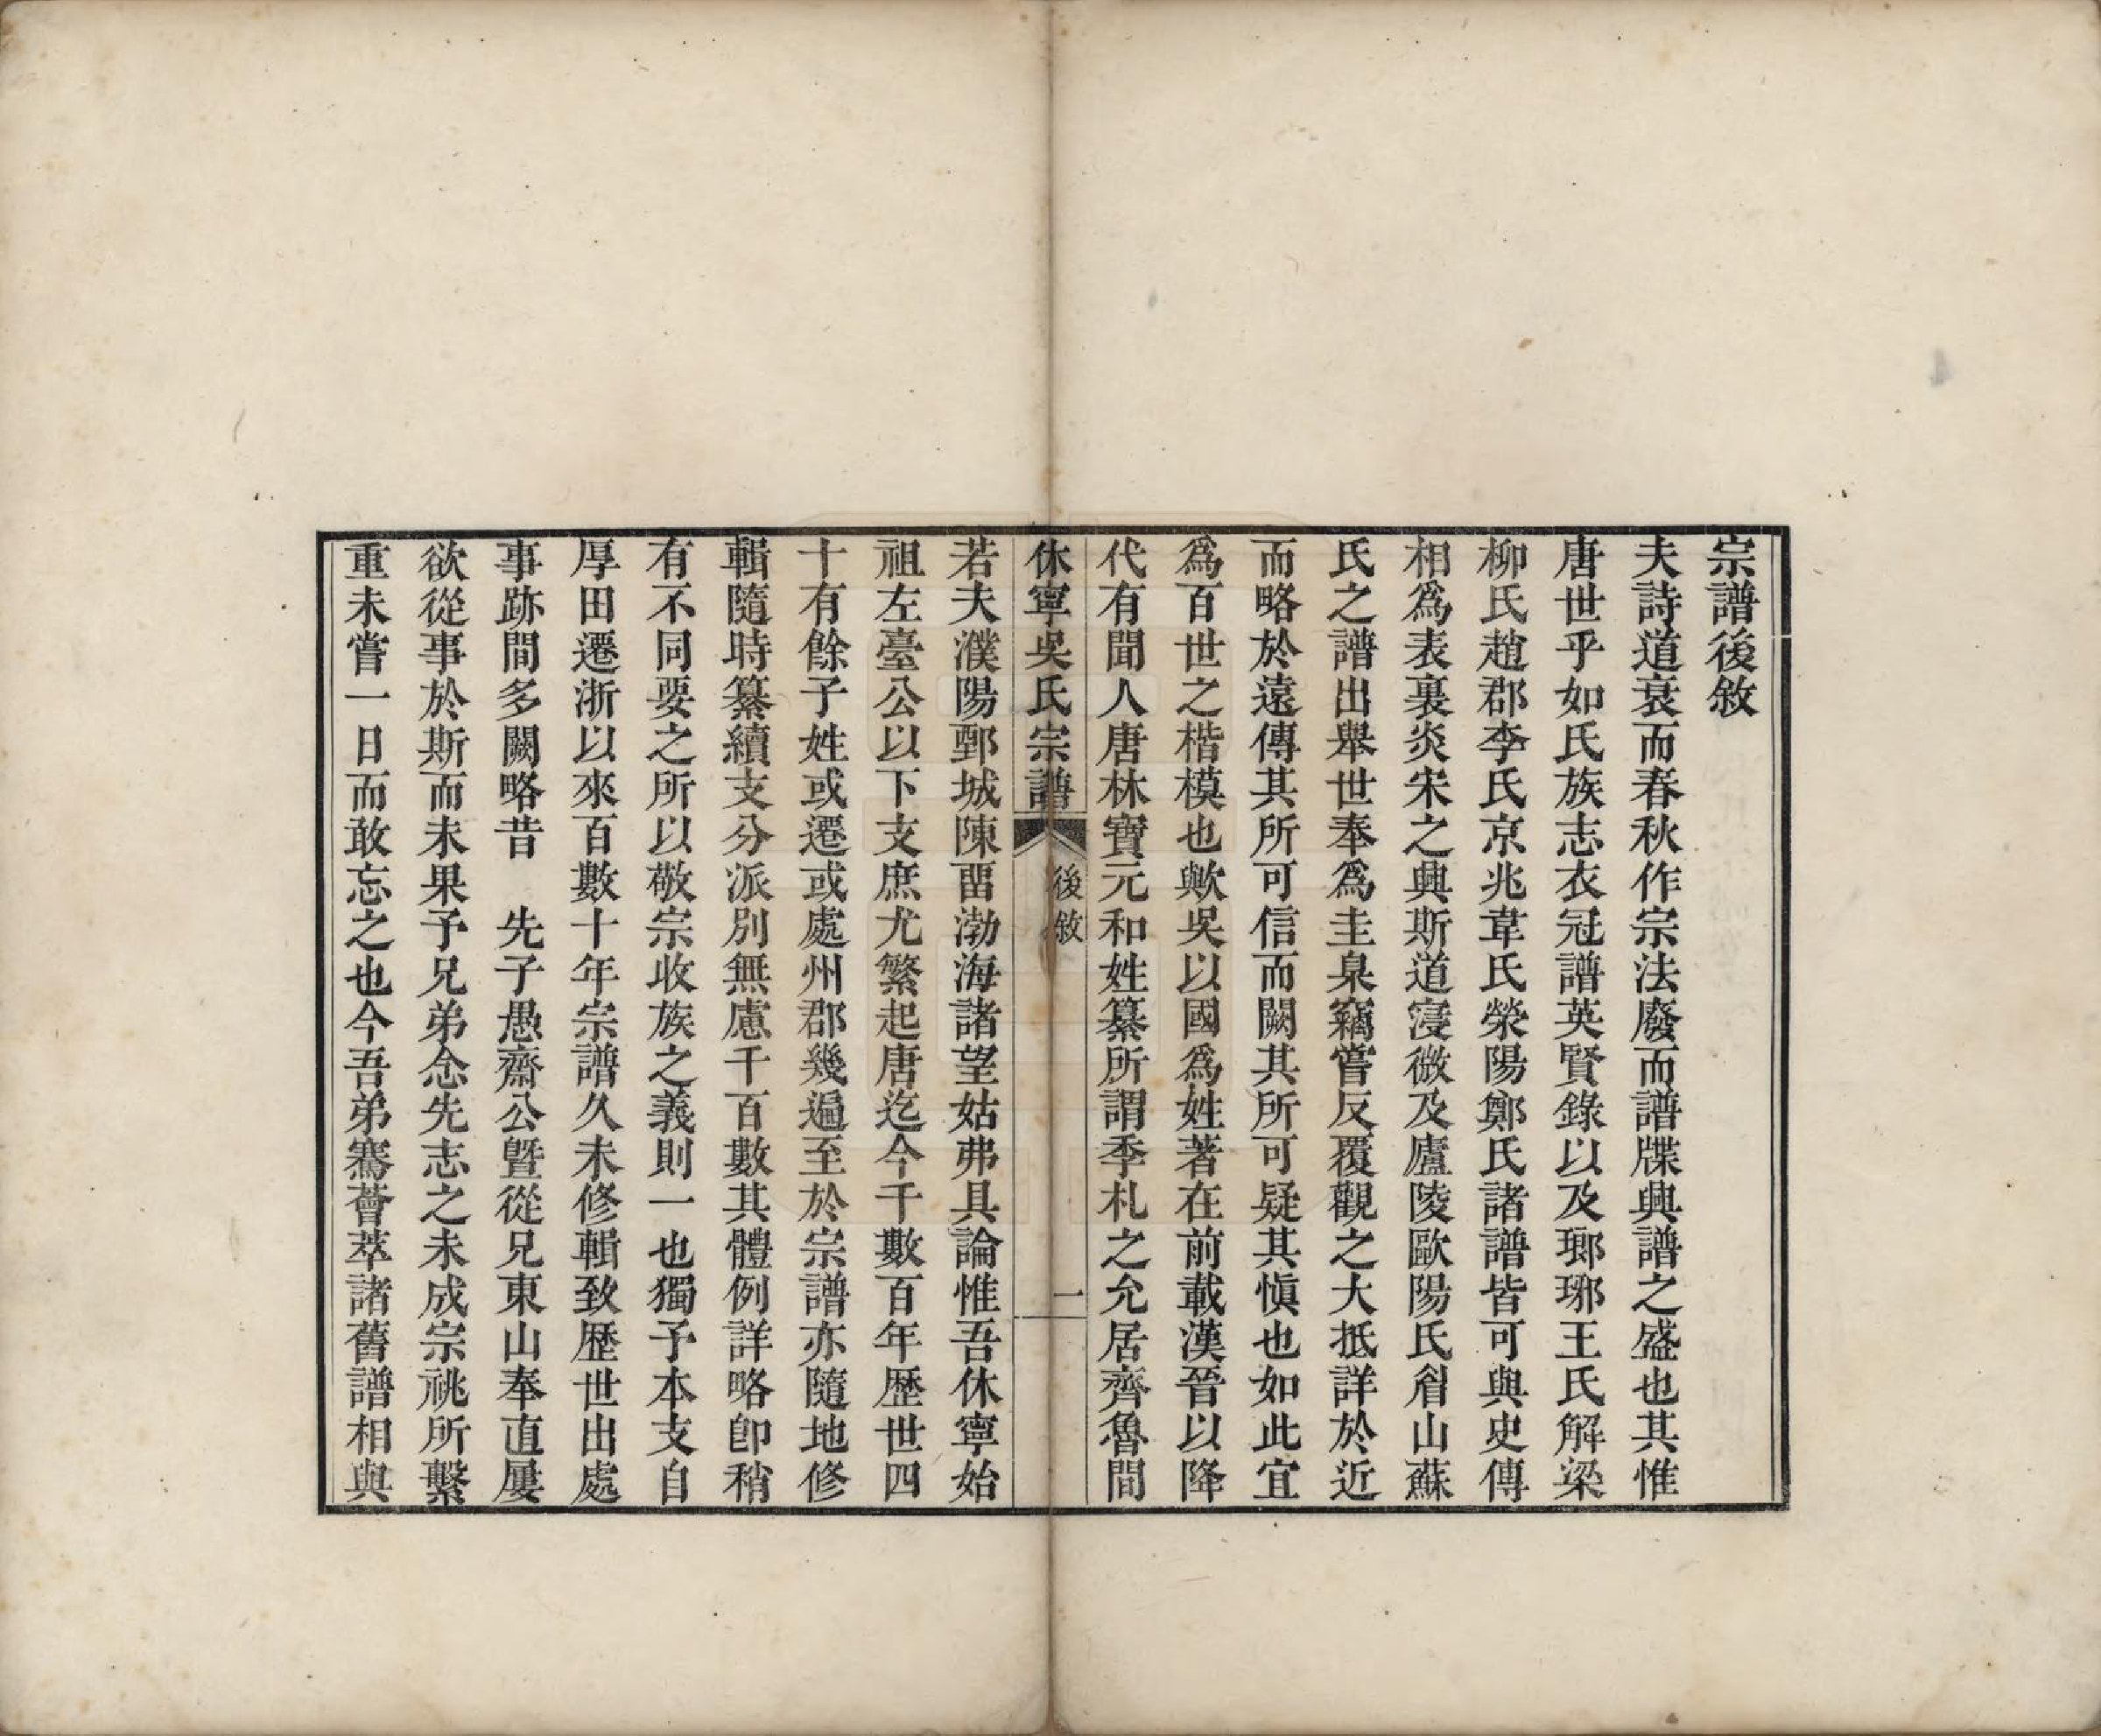 宗譜後敘
夫詩道衰而春秋作宗法廢而譜牒興譜之盛也其惟
唐世乎如氏族志衣冠譜英賢錄以及瑯琊王氏解梁
柳氏趙郡李氏京兆韋氏滎陽鄭氏諸譜皆可與史傳
相爲表裏炎宋之興斯道寖微及廬陵歐陽氏眉山蘇
氏之譜出舉世奉爲圭臬竊嘗反覆觀之大抵詳於近
而略於遠傳其所可信而闕其所可疑其愼也如此宜
爲百世之楷模也歟吳以國爲姓著在前載漢晉以降
代有聞人唐林寶元和姓纂所謂季札之允居齊魯間
休寧吳氏宗譜 後敘 一
若夫濮陽鄄城陳畱渤海諸望姑弗具論惟吾休寧始
祖左臺公以下支庶尤繁起唐迄今千數百年歷世四
十有餘子姓或遷或處州郡幾遍至於宗譜亦隨地修
輯隨時纂續支分派別無慮千百數其體例詳略卽稍
有不同要之所以敬宗收族之義則一也獨予本支自
厚田遷浙以來百數十年宗譜久未修輯致歷世出處
事跡間多闕略昔　先子愚齋公曁從兄東山奉直屢
欲從事於斯而未果予兄弟念先志之未成宗祧所繫
重未嘗一日而敢忘之也今吾弟騫薈萃諸舊譜相與